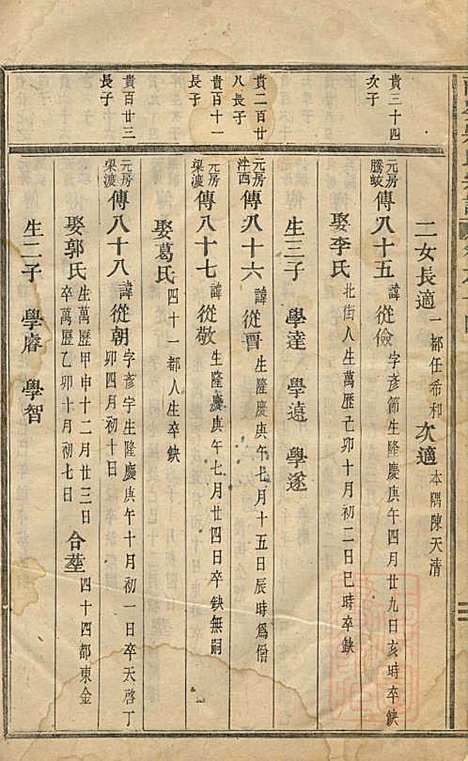 二女長適一都任希和 次適本隅陳天清
貴三十四次子
元房騰蛟 傳八十五 諱從儉 字彥節生隆慶庚午四月廿九日亥時卒缺
娶李氏 北街人生萬歷己卯十月初二日巳時卒缺
生三子 學達 學遠 學遂
貴二百廿八長子
元房泮西 傳八十六 諱從晋 生隆慶庚午七月十五日辰時爲僧
貴百十一長子
元房梁渡 傳八十七 諱從敬 生隆慶庚午七月廿四日卒缺無嗣
娶葛氏 四十一都人生卒缺
貴百廿三長子
元房梁渡 傳八十八 諱從朝 字彥宇生隆慶庚午十月初一日卒天啓丁卯四月初十日
娶郭氏 生萬歷甲申十二月廿三日卒萬歷乙卯十月初七日 合塟四十四都東金
生二子 學濬 學智